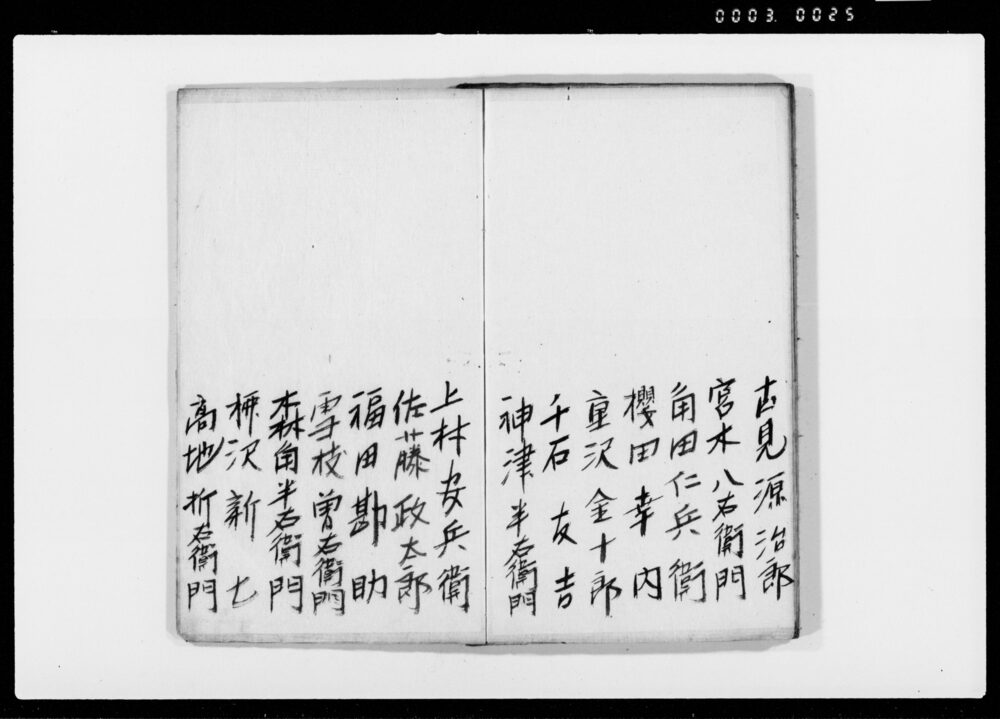 0003.0025
吉見源治郎
宮木八右衛門
角田仁兵衛
櫻田幸内
重沢金十郎
千石友吉
神津半右衛門
上林安兵衛
佐藤政太郎
福田勘助
雪枝曽右衛門
森角半右衛門
柳沢新七
高地折右衛門